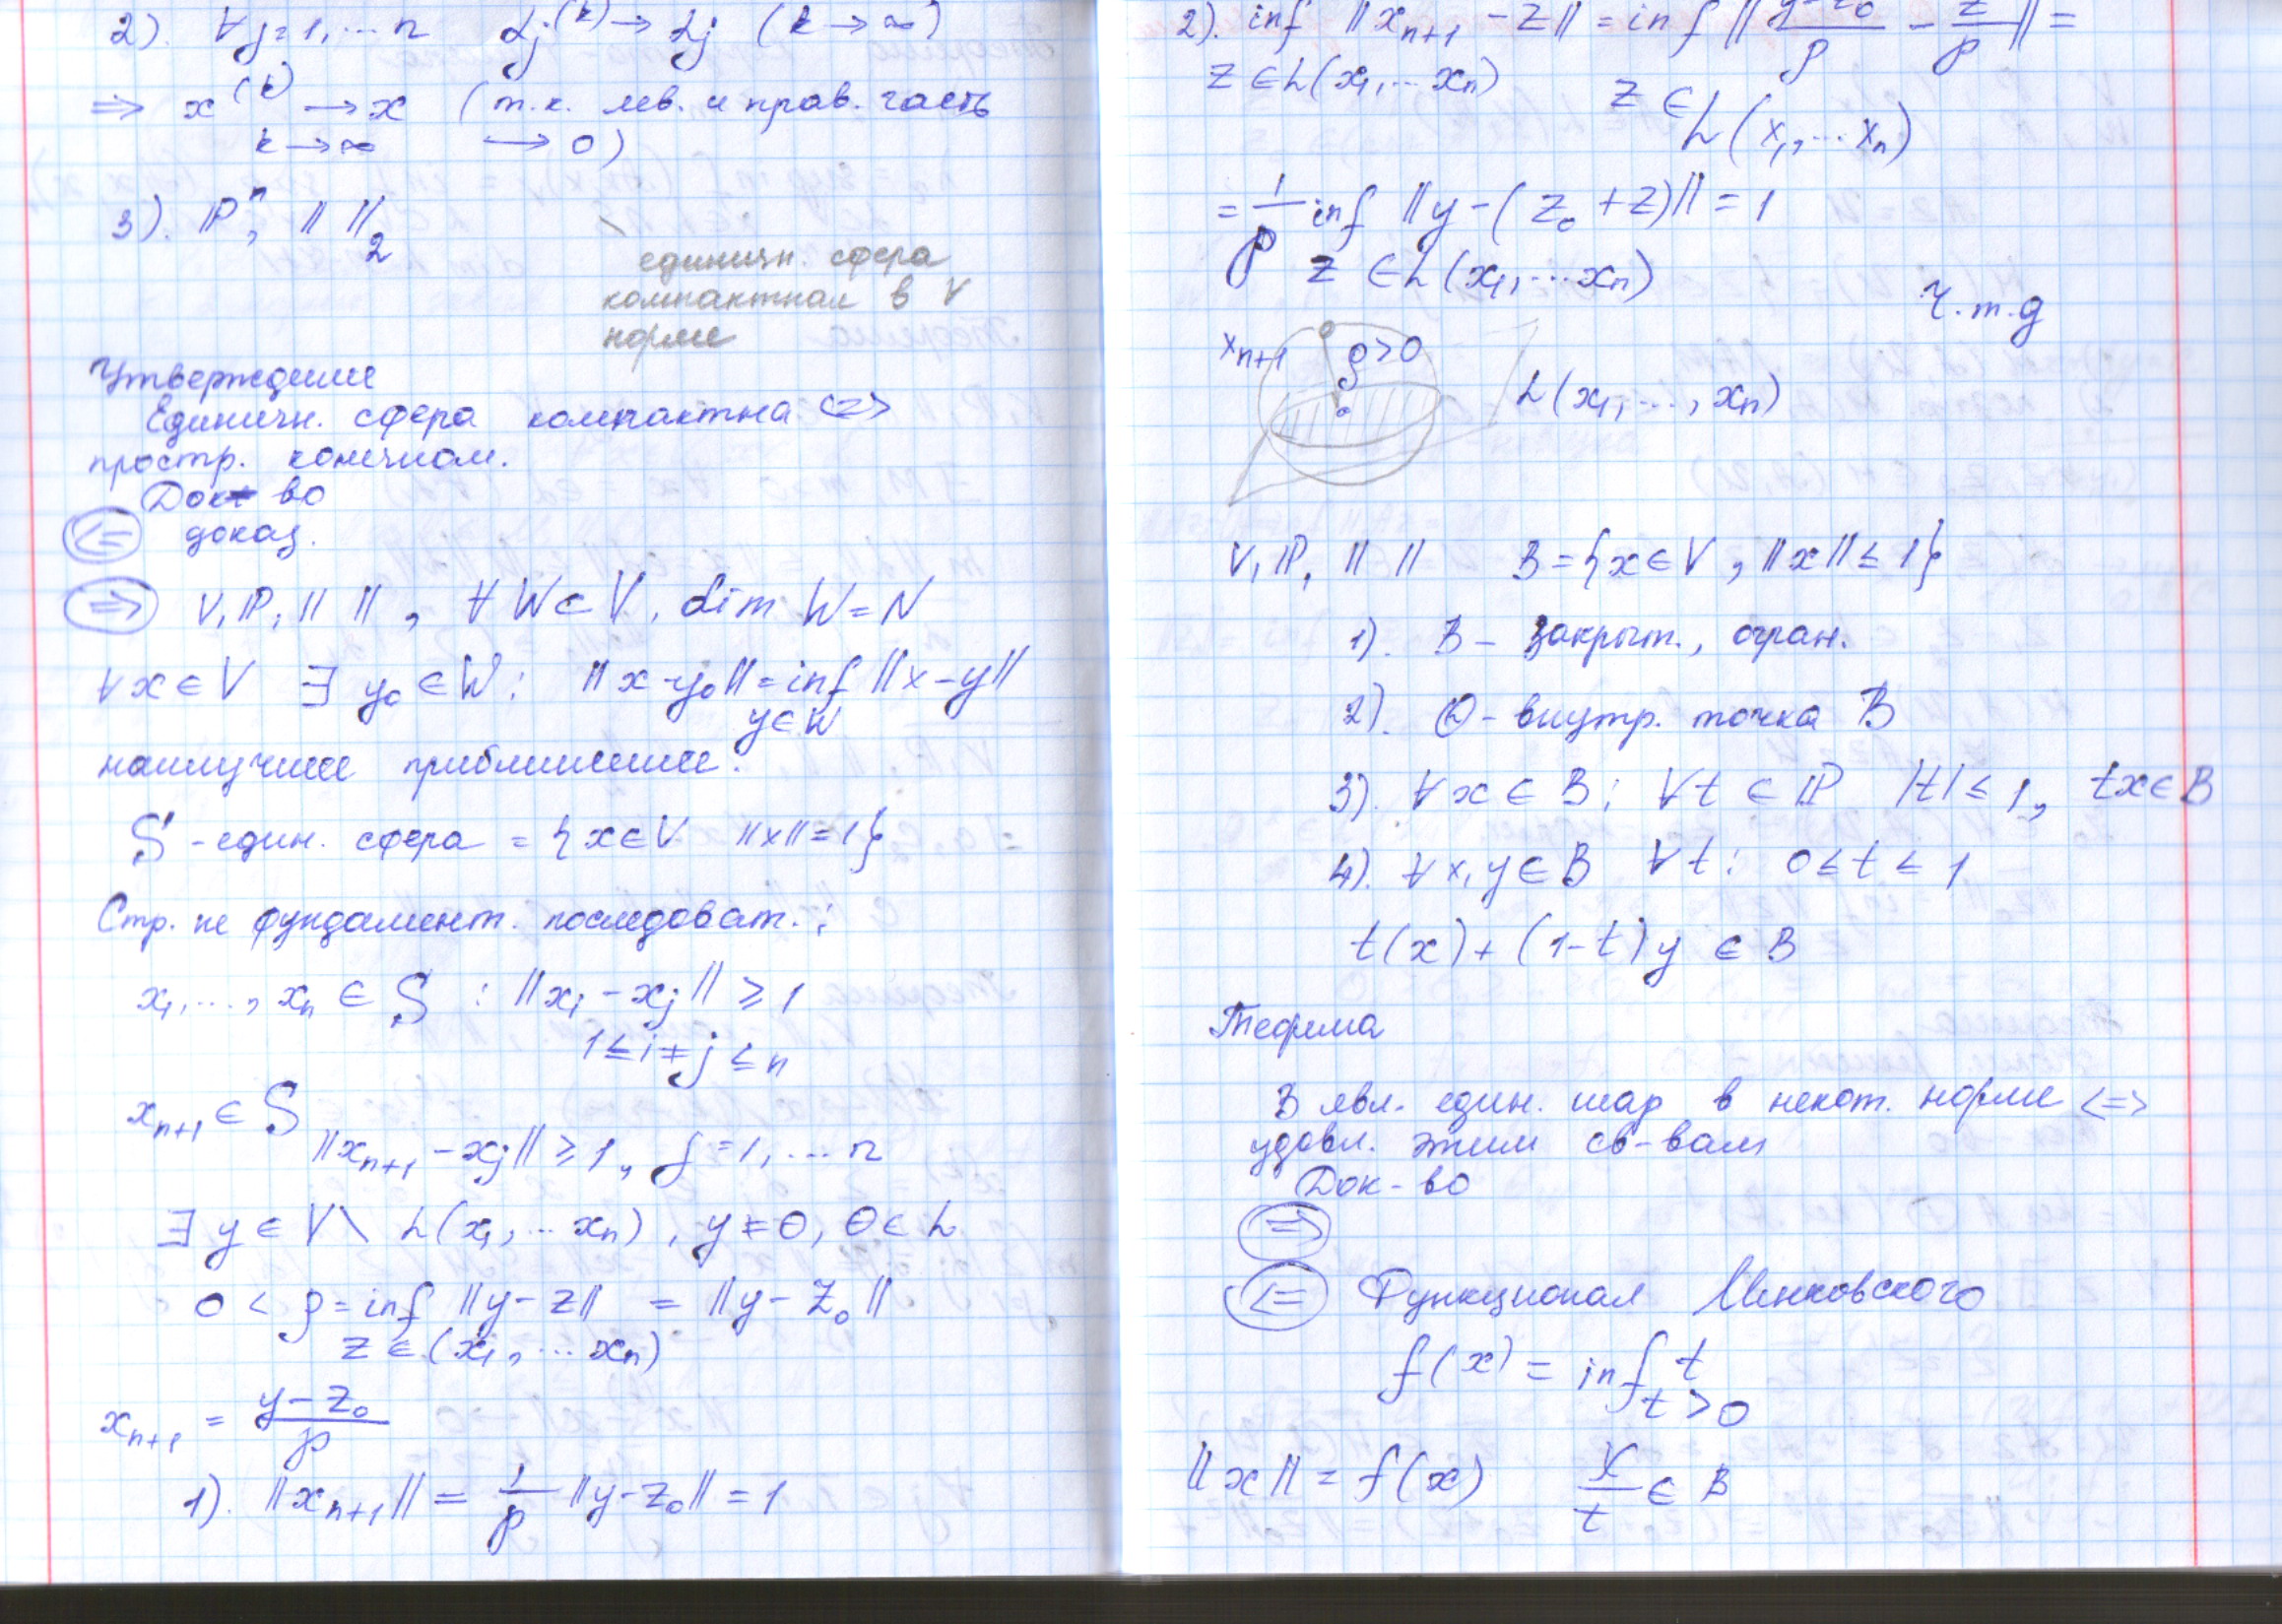 2). ∀ j=1,...n αj^(k) → αj (k→∞)
⇒ x^(k) → x (т.к. лев. и прав. часть
k→∞ → 0)
3). ℙ^n, || ||_2
единичн. сфера
компактная в ∀
норме
Утверждение
Единичн. сфера компактна <=>
простр. конечном.
Док-во
<= доказ.
=> V, ℙ, || ||, ∀ W ⊂ V, dim W = N
∀ x ∈ V ∃ y_0 ∈ W: ||x - y_0|| = inf ||x - y||
y ∈ W
наилучшее приближение.
S - един. сфера = {x ∈ V ||x|| = 1}
Стр. не фундамент. последоват.:
x_1, ..., x_n ∈ S : ||x_i - x_j|| ≥ 1
1 ≤ i ≠ j ≤ n
x_{n+1} ∈ S
||x_{n+1} - x_j|| ≥ 1, j = 1, ... n
∃ y ∈ V \ L(x_1, ... x_n), y ≠ θ, θ ∈ L
0 < ρ = inf ||y - z|| = ||y - z_0||
z ∈ (x_1, ... x_n)
x_{n+1} = (y - z_0)/ρ
1). ||x_{n+1}|| = 1/ρ ||y - z_0|| = 1
2). inf ||x_{n+1} - z|| = inf ||(y - z_0)/ρ - z/ρ|| =
z ∈ L(x_1, ... x_n) z ∈ L(x_1, ... x_n)
= 1/ρ inf ||y - (z_0 + z)|| = 1
z ∈ L(x_1, ... x_n)
Ч.т.д
x_{n+1} ρ>0
L(x_1, ..., x_n)
V, ℙ, || || B = {x ∈ V, ||x|| ≤ 1}
1). B - закрыт., огран.
2). θ - внутр. точка B
3). ∀ x ∈ B; ∀ t ∈ ℙ |t| ≤ 1, tx ∈ B
4). ∀ x, y ∈ B ∀ t: 0 ≤ t ≤ 1
t(x) + (1-t)y ∈ B
Теорема
B явл. един. шар в некот. норме <=>
удовл. этим св-вам
Док-во
=>
<= Функционал Минковского
f(x) = inf t
t > 0
||x|| = f(x) x/t ∈ B